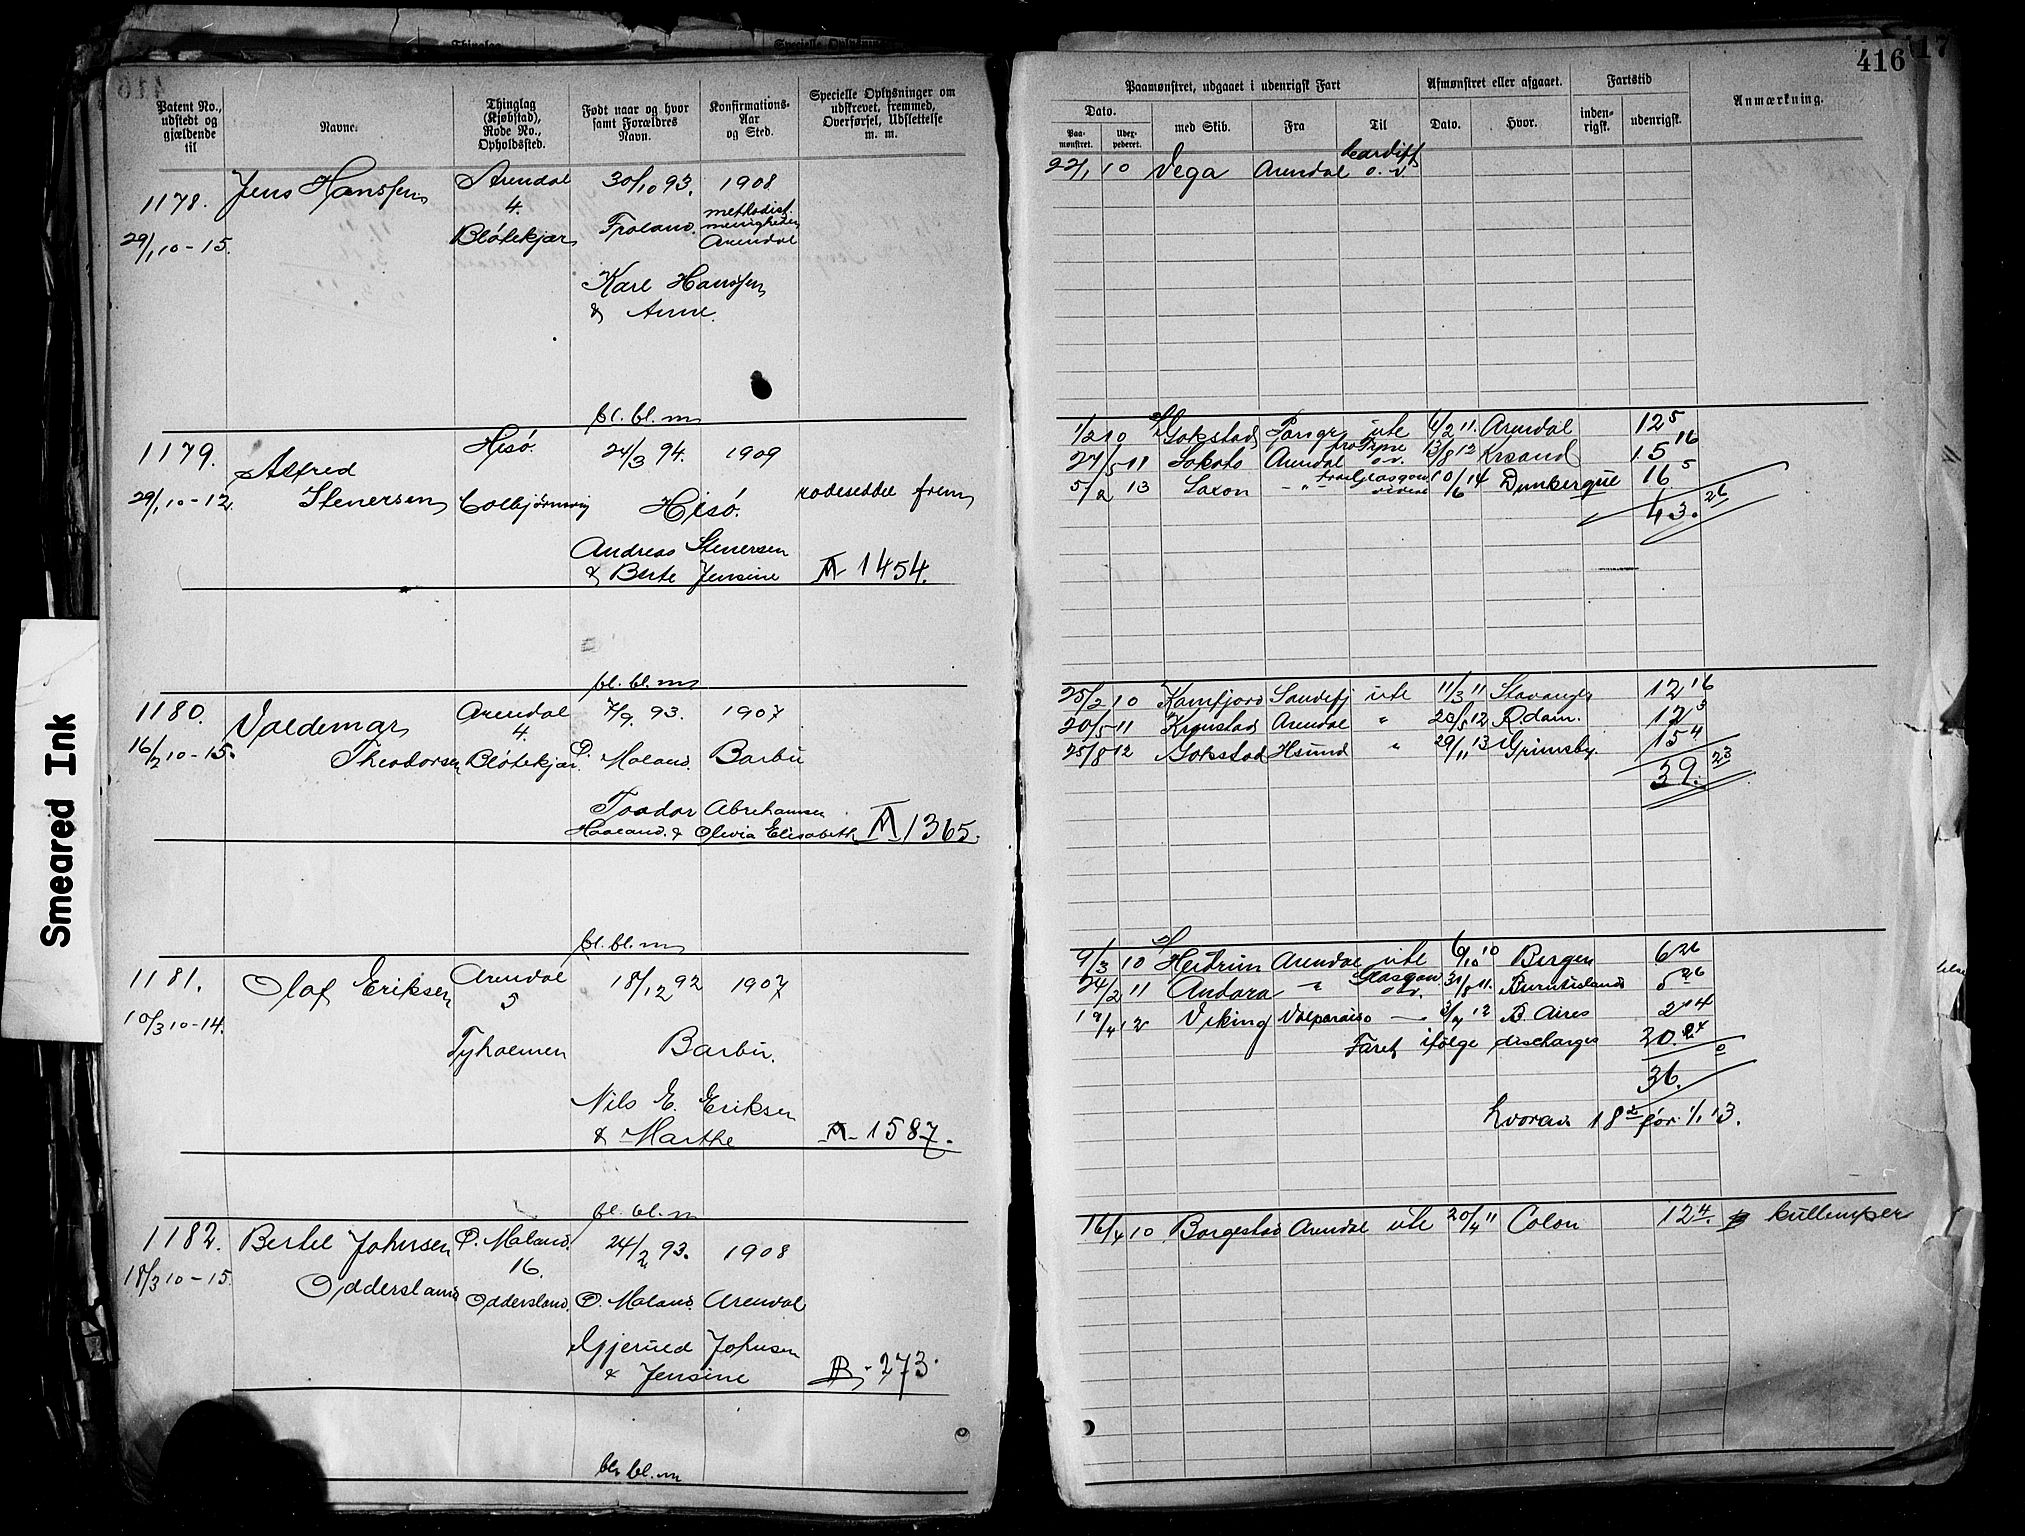 416
17
Thinglag
Patent No., udstedt og gjældende til
Navne.
Thinglag (Kjøbstad), Rode No., Opholdssted.
Født naar og hvor samt Forældres Navn.
Konfirmations-Aar og Sted.
Specielle Oplysninger om udskrevet, fremmed, Overførsel, Udslettelse m. m.
Paamønstret, udgaaet i udenrigsk Fart
Afmønstret eller afgaaet.
Fartstid
Anmærkning.
Dato.
Paamønstret.
Udexpederet.
med Skib.
Fra
Til
Dato.
Hvor.
indenrigsk.
udenrigsk.
1178. Jens Hanssen Arendal 30/10 93. 1908
4. methodist.
menigheden
29/1 10-15. Bløtekjær Froland. Arendal
Karl Hanssen
& Anne.
bl. bl. m
22/1 10 Vega Arendal Cardiff o. v.
1179. Alfred Hisø. 24/3 94. 1909
29/1 10-12. Stenersen Colbjørnsvig Hisø. rodeseddel frem
Andreas Stenersen
& Berte Jensine A 1454.
bl. bl. m
1/2 10 S/S Gokstad Porsgr. ute 4/2 11. Arendal 12 5
27/5 11 Sokoto Arendal fra Tyne o.v. 13/8 12 Krsand 15 16
5/2 13 Saxon - " - fra Glasgow 10/6 14 Dunkerque 16 5
43. 26
1180. Valdemar Arendal 7/9. 93. 1907
4.
16/2 10-15. Theodorsen Bløtekjær. Ø. Moland. Barbu
Toodor Abrahamsen
Haaland. & Olivia Elisabeth A 1365.
bl. bl. m
25/2 10 Kamfjord Sandefj ute 11/3 11 Stavanger 12 16
20/5 11 Kronstad Arendal " 23/5 12 Rdam. 12 3
25/8 12 Gokstad Hsund " 29/11 13 Grimsby. 15 4
39. 23
1181. Olaf Eriksen Arendal 18/12 92 1907
5
10/3 10-14. Tyholmen Barbu.
Nils E. Eriksen
& Marthe A 1587.
bl. bl. m
9/3 10 S/S Heidrun Arendal ute 6/10 10 Bergen 6 26
24/2 11 Andora " Glasgow o.v. 31/8 11. Burntisland 5 26
19/4 12 Viking Valparaiso — 3/7 12 B. Aires 2 14
Faret ifølge discharges 20. 24
36. 0
hvorav 18 2 før 1/1 13.
1182. Bertel Johnsen Ø. Moland. 24/2 93. 1908
16.
18/3 10-15. Oddersland Oddersland. Ø. Moland. Arendal
Gjerued Johnsen
& Jensine B - 273.
bl. bl. m
16/4 10 Borgestad Arendal ute 20/4 11 Colon 12 4. kullemper
Smeared Ink